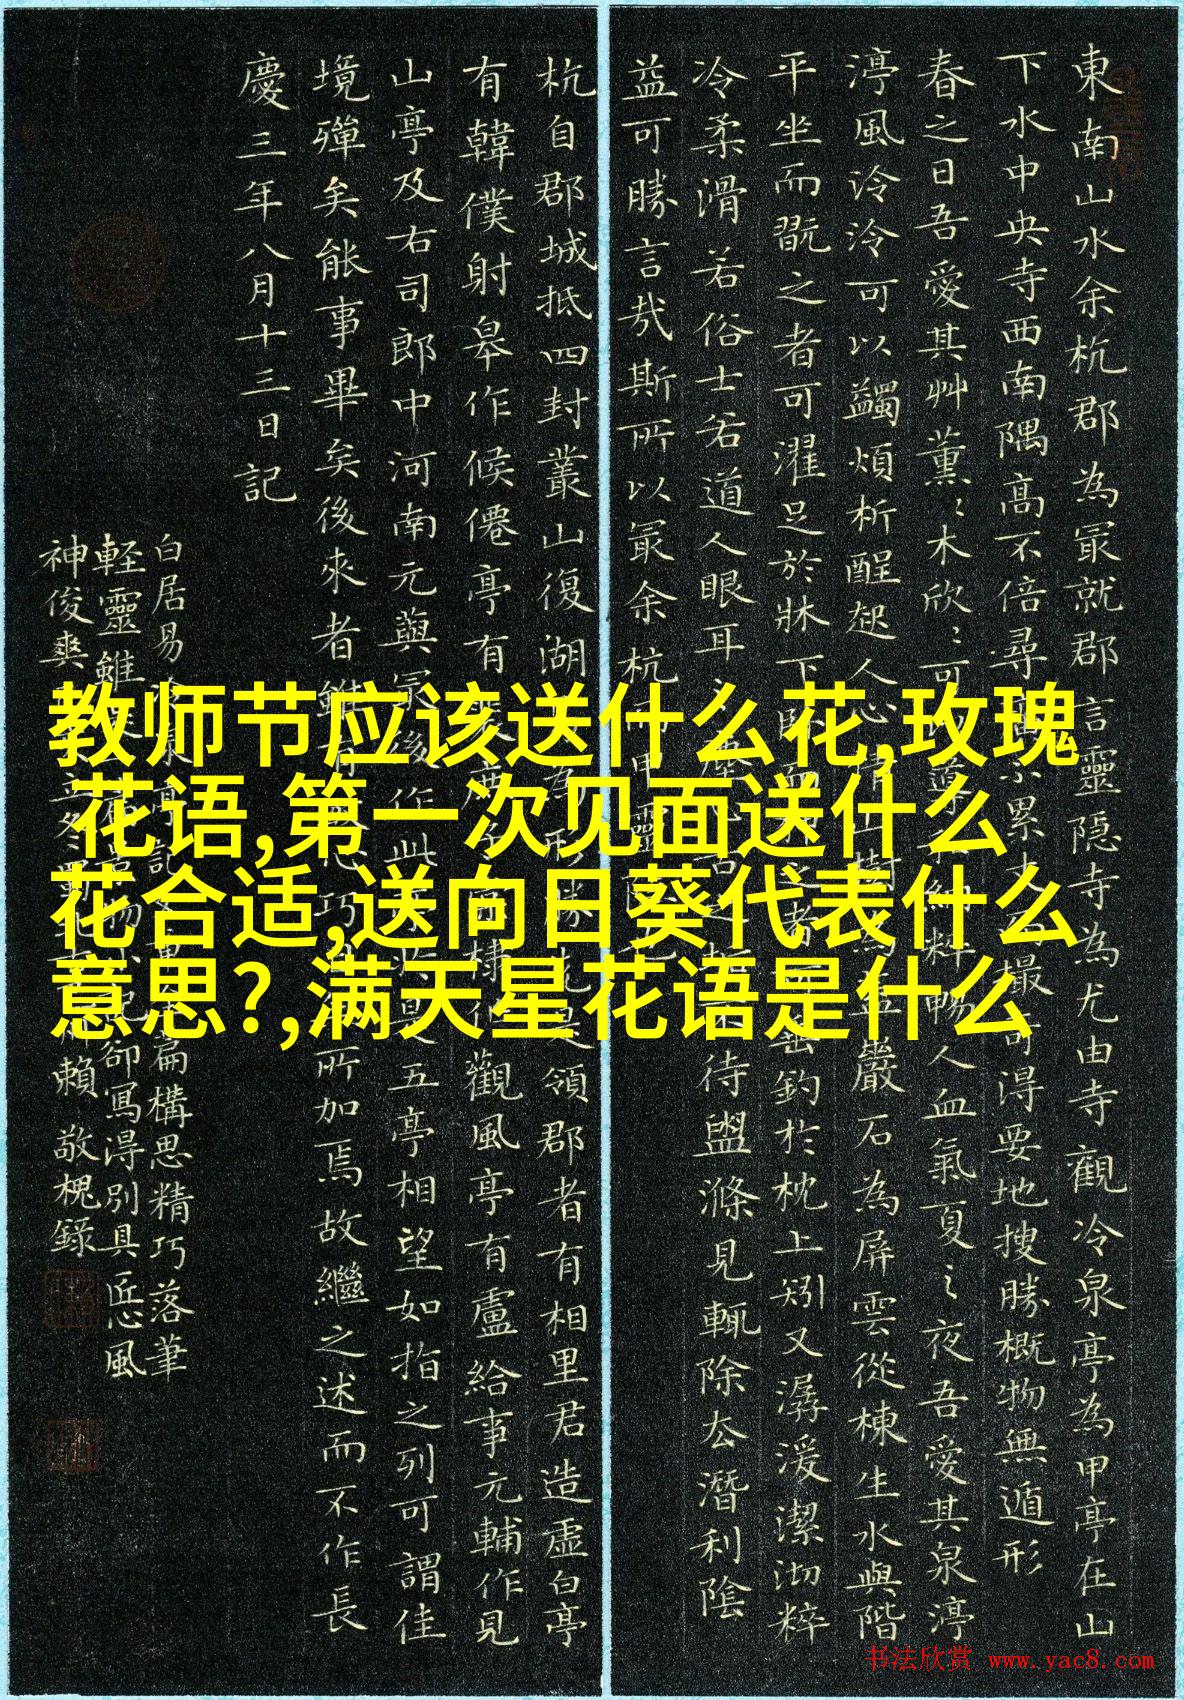 東南山水余杭郡為冣就郡言靈隐寺為尤由寺觀冷泉亭為甲亭在山
下水中央寺西南隅髙不倍尋
累
撮
可得要地搜勝概物無遁形
春之日吾愛其艸薰〻木欣〻可
導
納粹暢人血氣夏之夜吾愛其泉渟
渟風泠泠可以蠲煩析酲起人心
樹
巖石為屏雲從棟生水與階
平坐而翫之者可濯足於牀下卧
者
垂釣於枕上矧又潺湲潔沏粹
冷柔滑若俗士若道人眼耳之
待盥滌見輒除去潛利陰
益可勝言㦲斯所以冣余杭
甲靈
杭自郡城抵四封叢山復湖
為形
領郡者有相里君造虛白亭
有韓僕射皋作候僊亭有
觀風亭有盧給事元輔作見
山亭及右司郎中河南元藇冣後作此
是五亭相望如指之列可謂佳
境殫矣能事畢矣後來者雖有
巧
所加焉故繼之述而不作長
慶三年八月十三日記
白居易冷泉亭記
篇構思精巧落筆
軽靈雖
卻寫得別具匠心風
神俊爽
賴 敬槐錄
教师节应该送什么花,玫瑰
花语,第一次见面送什么
花合适,送向日葵代表什么
意思?,满天星花语是什么
书法欣赏 www.yac8.com